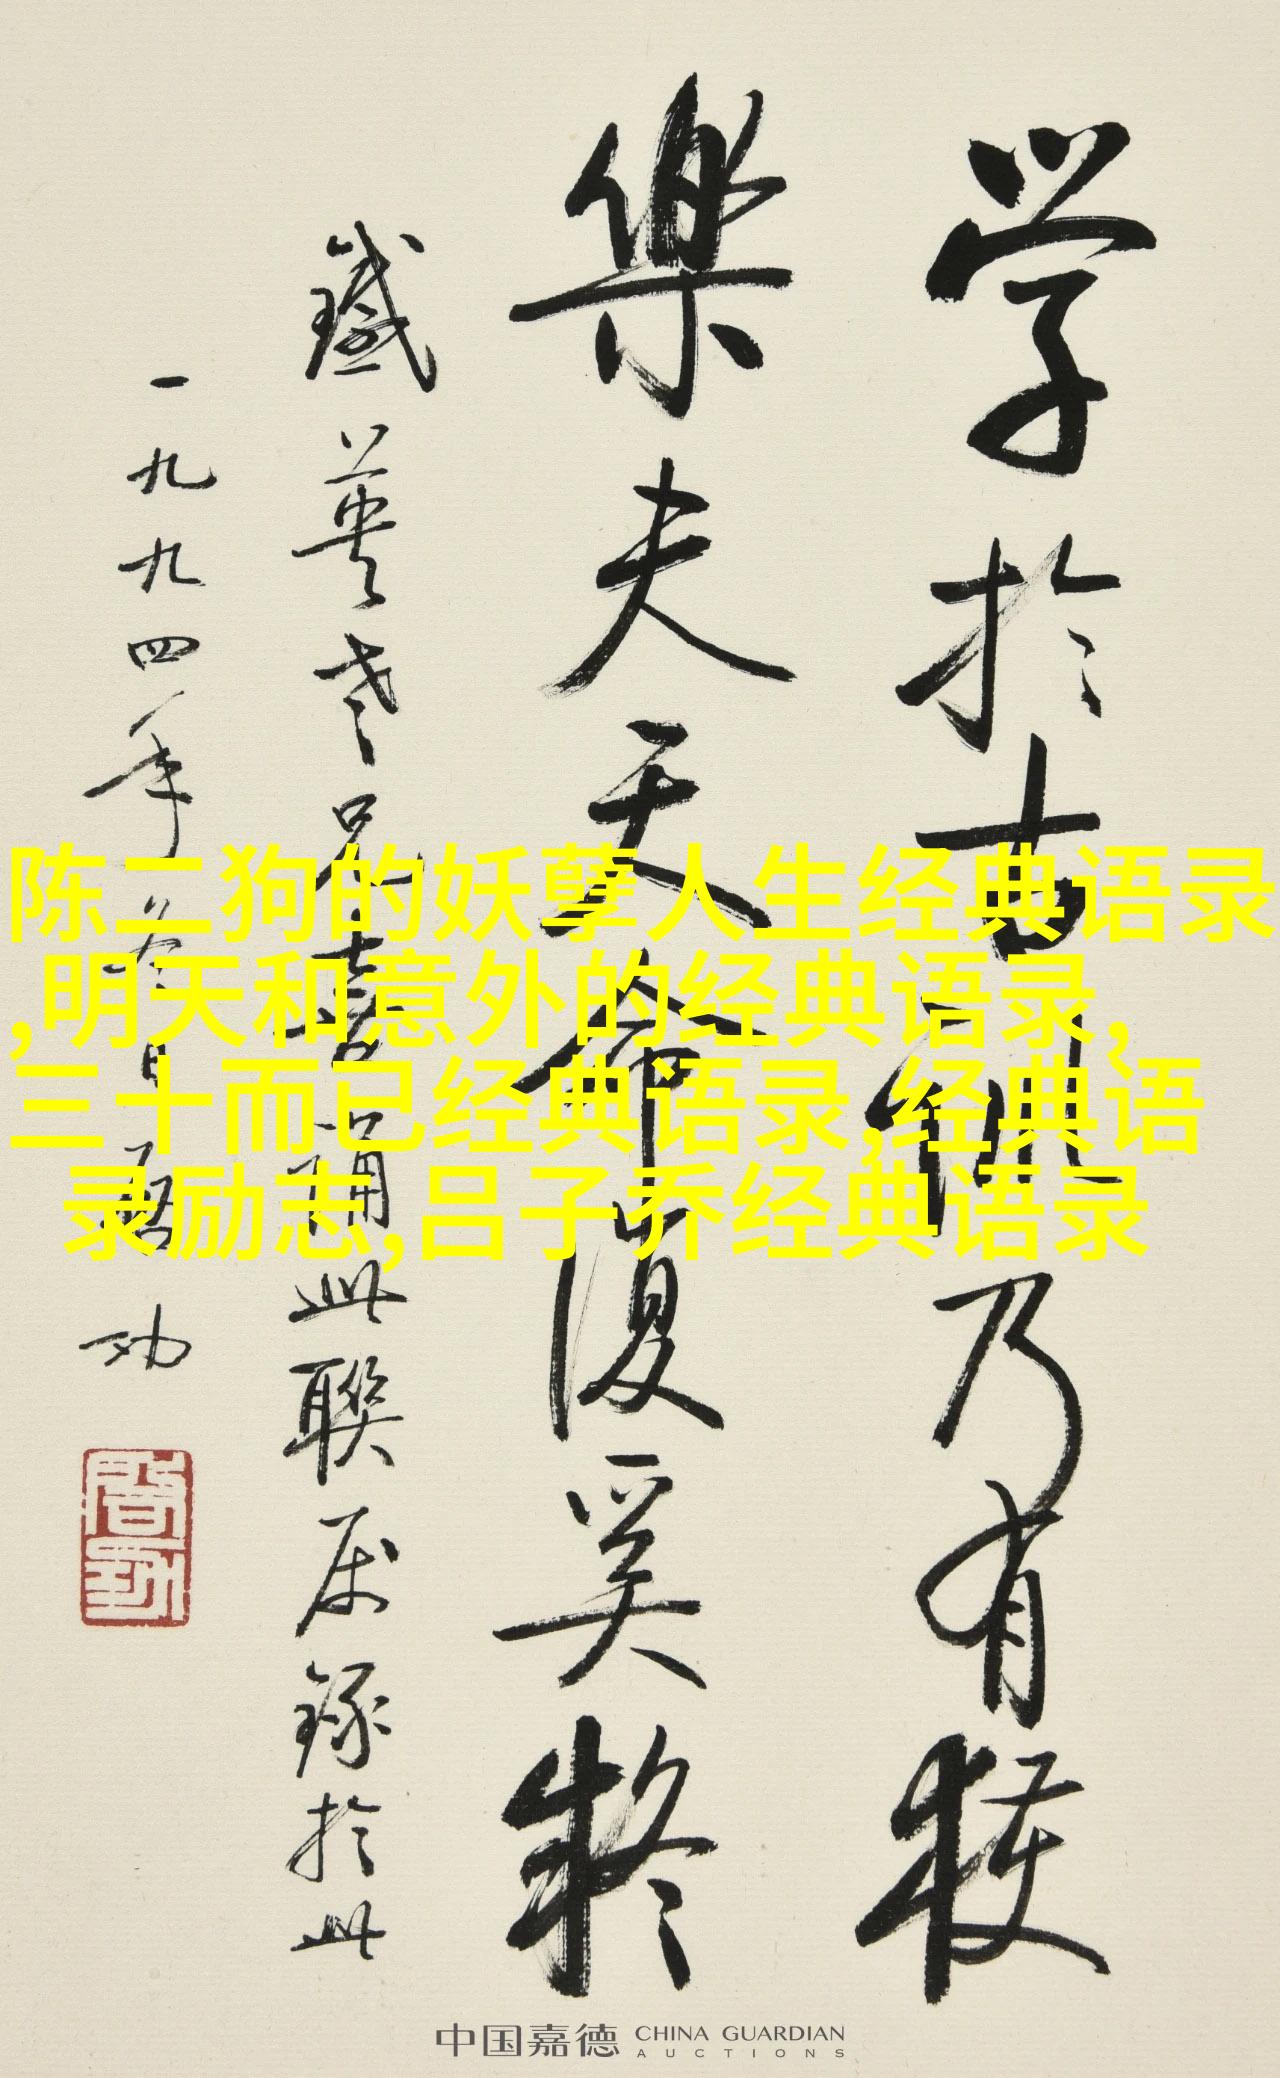 学於古训乃有获
樂夫天命復奚疑
鐵英老兄喜诵此聯属録於此
一九九四年冬日启功
启功
陈二狗的妖孽人生经典语录
,明天和意外的经典语录,
三十而已经典语录,经典语
录励志,吕子乔经典语录
中国嘉德 CHINA GUARDIAN
AUCTIONS